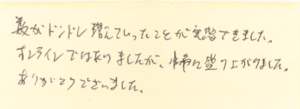 数がドンドン増えていったことが実感できました。
オンラインではありましたが、非常に盛り上がりました。
ありがとうございました。